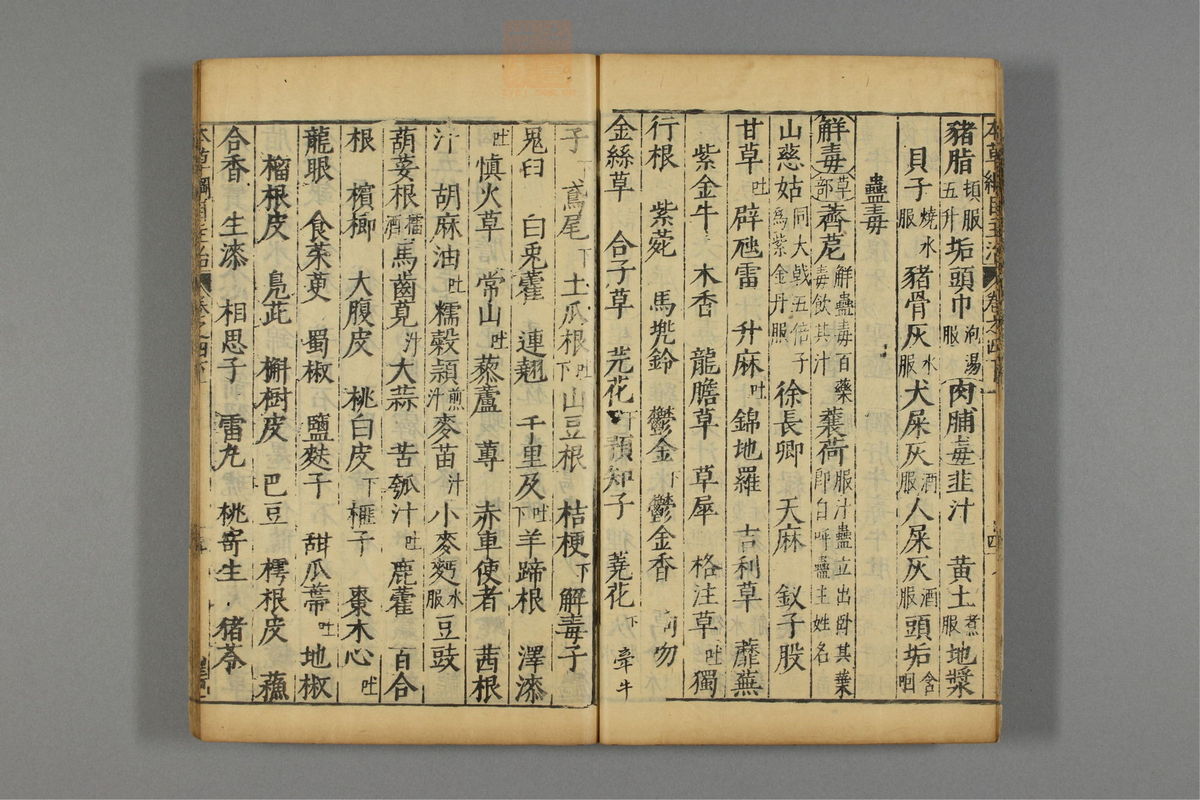 本草綱目主治　卷之四
豬脂頓服五升垢頭巾泡湯服肉脯毒韭汁　黃土煮服地漿
貝子燒水服豬骨灰水服犬屎灰酒服人屎灰酒服頭垢含咽
蠱毒
解毒草部薺苨解蠱毒百藥毒飲其汁蘘荷服汁蠱立出卧其葉即自呼蠱主姓名
山慈姑同大戟五倍子為紫金丹服徐長卿　天麻　釵子股
甘草吐辟虺雷　升麻吐錦地羅　吉利草　蘼蕪
紫金牛　木香　龍膽草　草犀　格注草吐獨
行根　紫菀　馬兜鈴　鬱金下鬱金香　鉤吻
金絲草　合子草　芫花下預知子　蕘花下牽牛
子下鳶尾下土瓜根吐下山豆根　桔梗下解毒子
鬼臼　白兎藿　連翹　千里及吐下羊蹄根　澤漆
吐慎火草　常山吐藜蘆　蓴　赤車使者　茜根
汁　胡麻油吐糯穀穎煎汁麥苗汁小麥麪水服豆豉
葫荽根擂酒馬齒莧汁大蒜　苦瓠汁吐鹿藿　百合
根　檳榔　大腹皮　桃白皮下榧子　棗木心吐
龍眼　食茱萸　蜀椒　鹽麩子　甜瓜蔕吐地椒
榴根皮　鳧茈　槲樹皮　巴豆　樗根皮　蘓
合香　生漆　相思子　雷丸　桃寄生　猪苓
本草綱目主治　卷之四